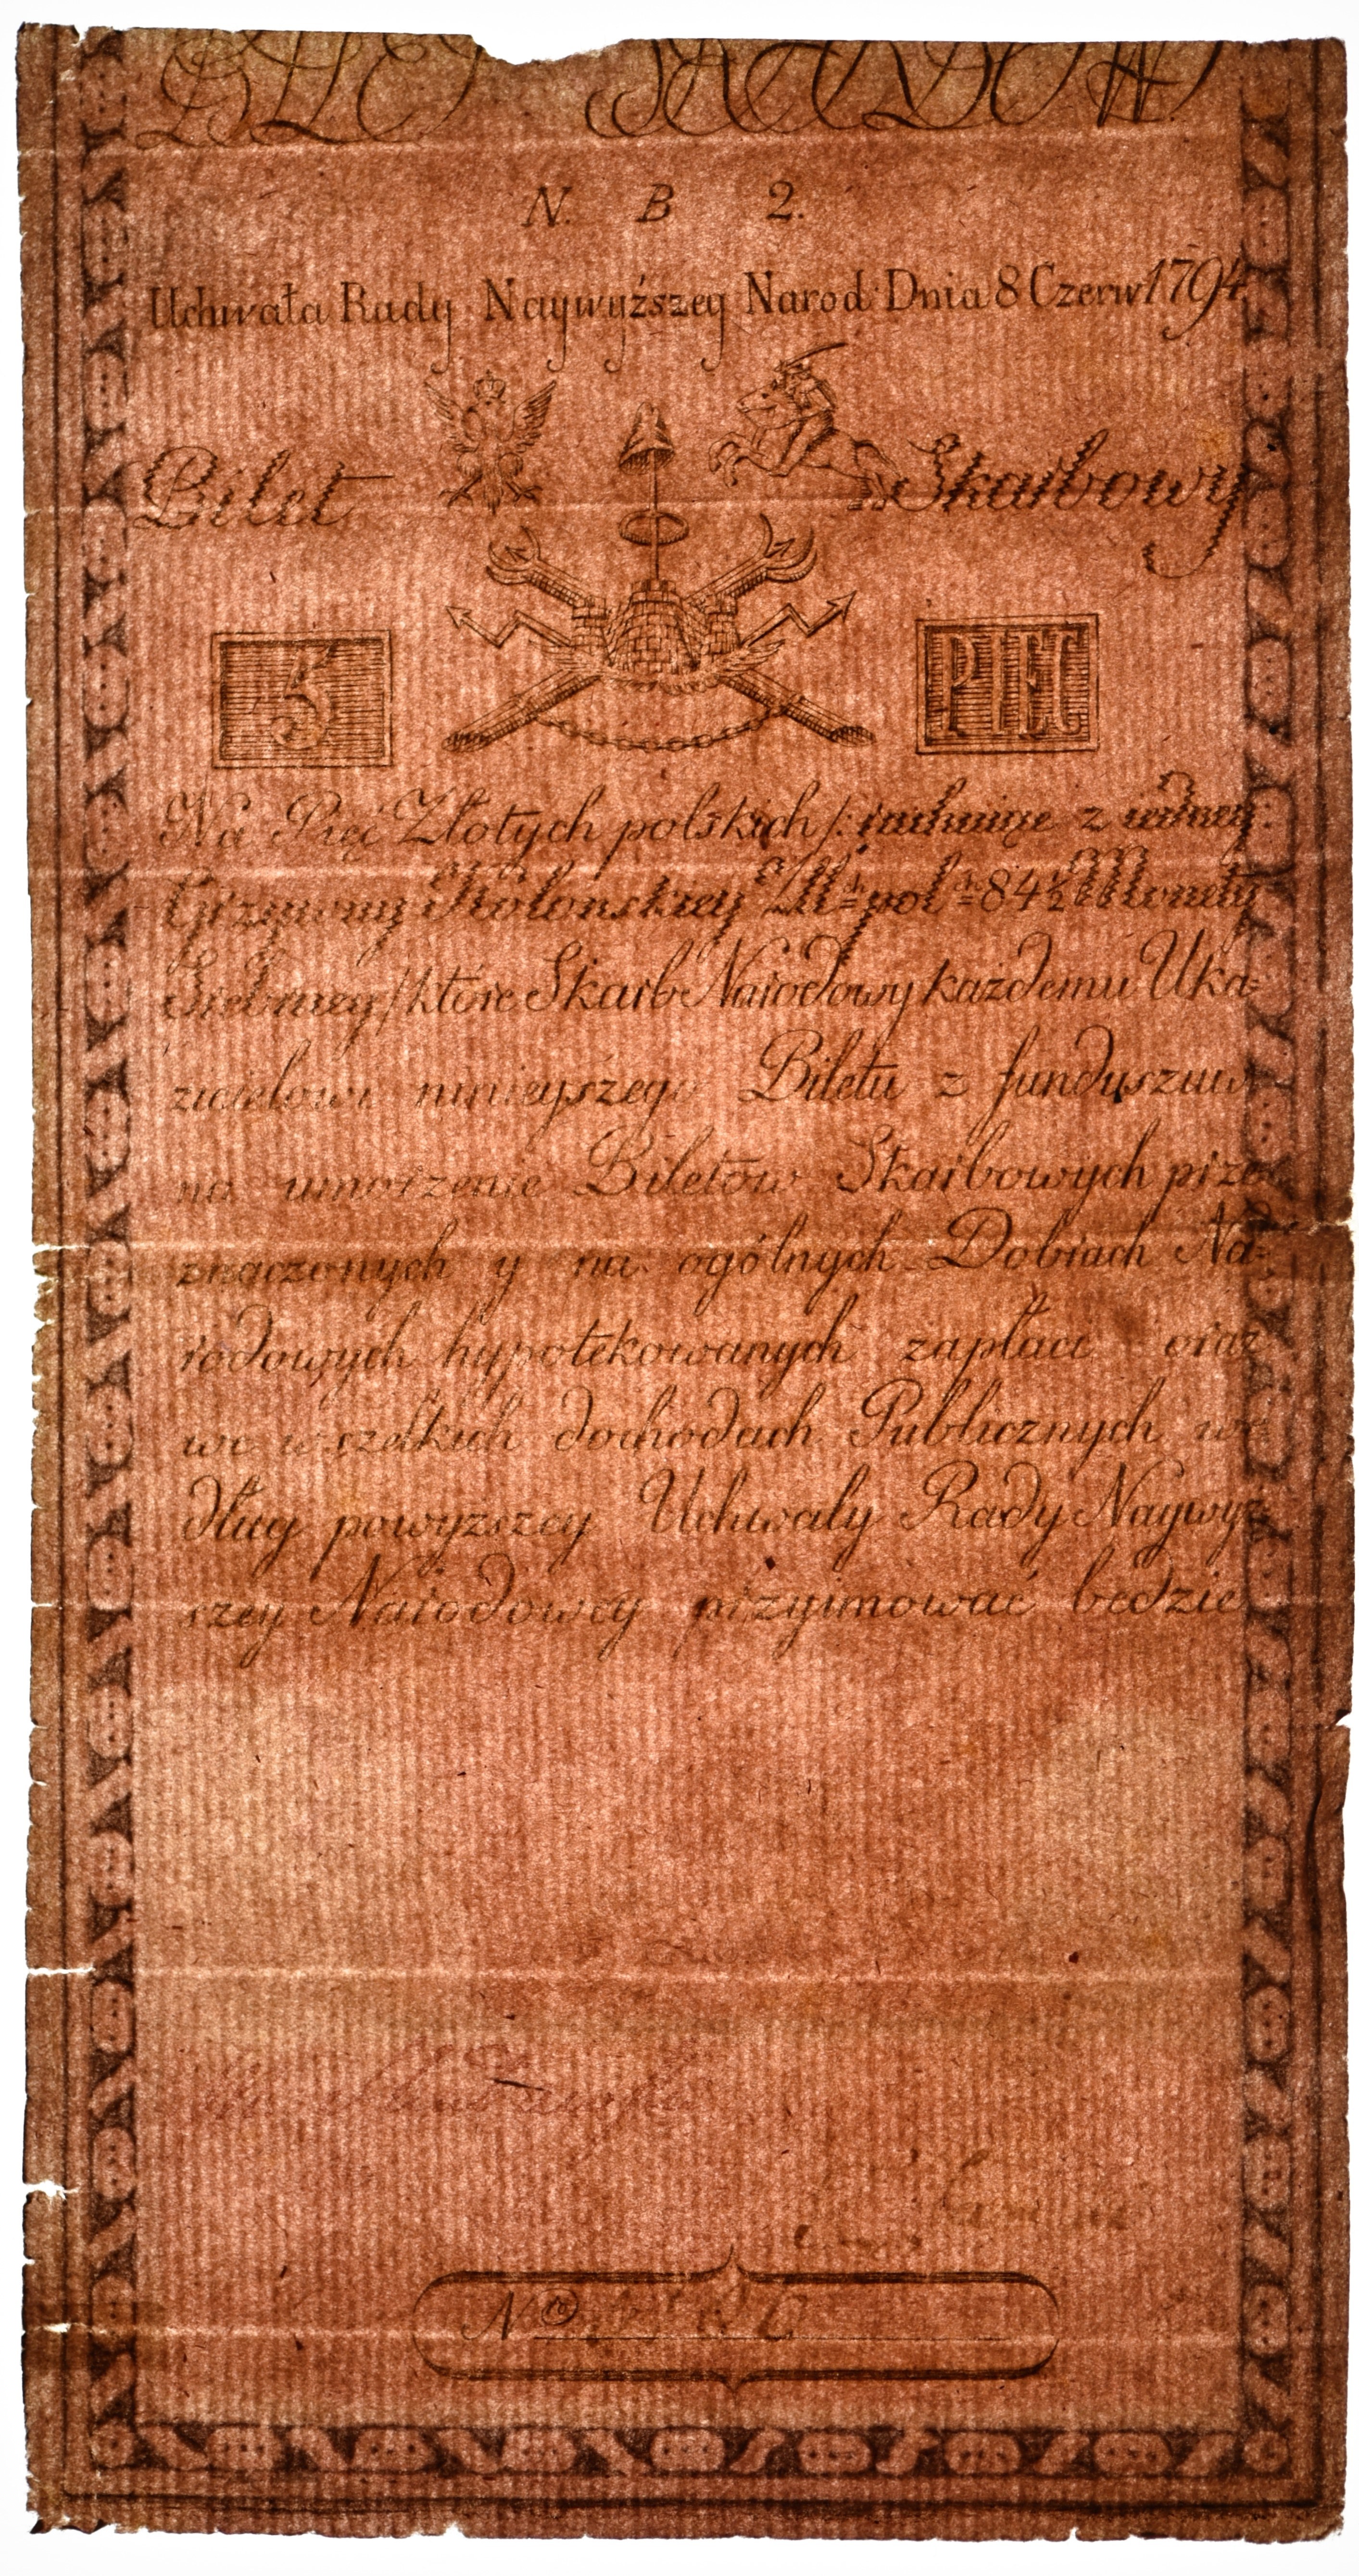 N. B 2.
Uchwała Rady Naywyższey Narod: Dnia 8 Czerw 1794
Bilet Skarbowy
5 PIĘĆ
Na Pięć Złotych polskich /: rachuiąc z iedney
Grzywny Kolonskiey Złł: pol: 84½ Monety
Srebrney :/ ktore Skarb Narodowy każdemu Uka=
zicielowi ninieyszego Biletu z funduszuw
na umorzenie Biletow Skarbowych prze
znaczonych y na ogólnych Dobrach Na=
rodowych hypotekowanych zapłaci oraz
we wszelkich dochodach Publicznych we=
dług powyższey Uchwały Rady Naywyż=
szey Narodowey przyimować będzie
Nro